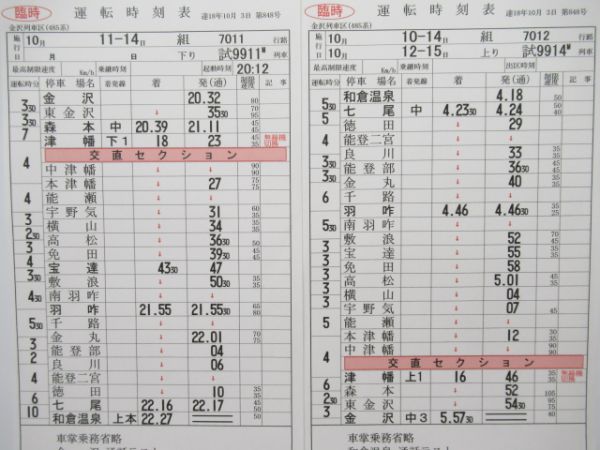 臨時 運転時刻表 達18年10月 3日 第848号
金沢列車区(485系)
施行 10月 11-14日 組 7011 行路
月 日 下り 試9911M 列車
最高制限速度 Km/h 乗継時刻 起動時刻 20:12
運転時分 停車場名 着発線 着 発(通) 制限速度 記事
金沢 20.32 80
3 30 東金沢 ↓ 35 30 70 95
3 30 森本 中 20.39 21.11 45 45
7 津幡 下1 18 23 45 35 無線機切換
交直セクション
4 中津幡 ↓ ↓ 90 90
本津幡 ↓ 27 75 75
4 能瀬 ↓ ↓
宇野気 ↓ 31 60 35
3 横山 ↓ 34 35
2 30 高松 ↓ 36 30 50
3 免田 ↓ 39 30 45
4 宝達 43 30 47 45
3 30 敷浪 ↓ 50 30 35
4 30 南羽咋 ↓ ↓
羽咋 21.55 21.55 30 65 80
5 30 千路 ↓ ↓
金丸 ↓ 22.01 70 75
3 能登部 ↓ 04
2 良川 ↓ 06
4 能登二宮 ↓ ↓
徳田 ↓ 10 35 35
6 七尾 22.16 22.17 45 50
10 和倉温泉 上本 22.27
車掌乗務省略
臨時 運転時刻表 達18年10月 3日 第848号
金沢列車区(485系)
施行 10月 10-14日 組 7012 行路
10月 12-15日 上り 試9914M 列車
最高制限速度 Km/h 乗継時刻 出区時刻
運転時分 停車場名 着発線 着 発(通) 制限速度 記事
和倉温泉 4.18 50
5 30 七尾 中 4.23 30 4.24 30 40
5 徳田 ↓ 29
能登二宮 ↓ ↓
4 良川 ↓ 33 35
3 30 能登部 ↓ 36 30 45
3 30 金丸 ↓ 40 35
6 千路 ↓ ↓
羽咋 4.46 4.46 30 35 25
南羽咋 ↓ ↓
5 30 敷浪 ↓ 52 70 45
3 宝達 ↓ 55 35
3 免田 ↓ 58 45
3 高松 ↓ 5.01 45 35
3 横山 ↓ 04
3 宇野気 ↓ 07 45
5 能瀬 ↓ ↓
本津幡 ↓ 12 30
中津幡 ↓ ↓ 90 90
4 交直セクション
津幡 上1 16 46 35 35 無線機切換
6 森本 ↓ 52 105
2 30 東金沢 ↓ 54 30 95 75
3 金沢 中3 5.57 30 80
車掌乗務省略